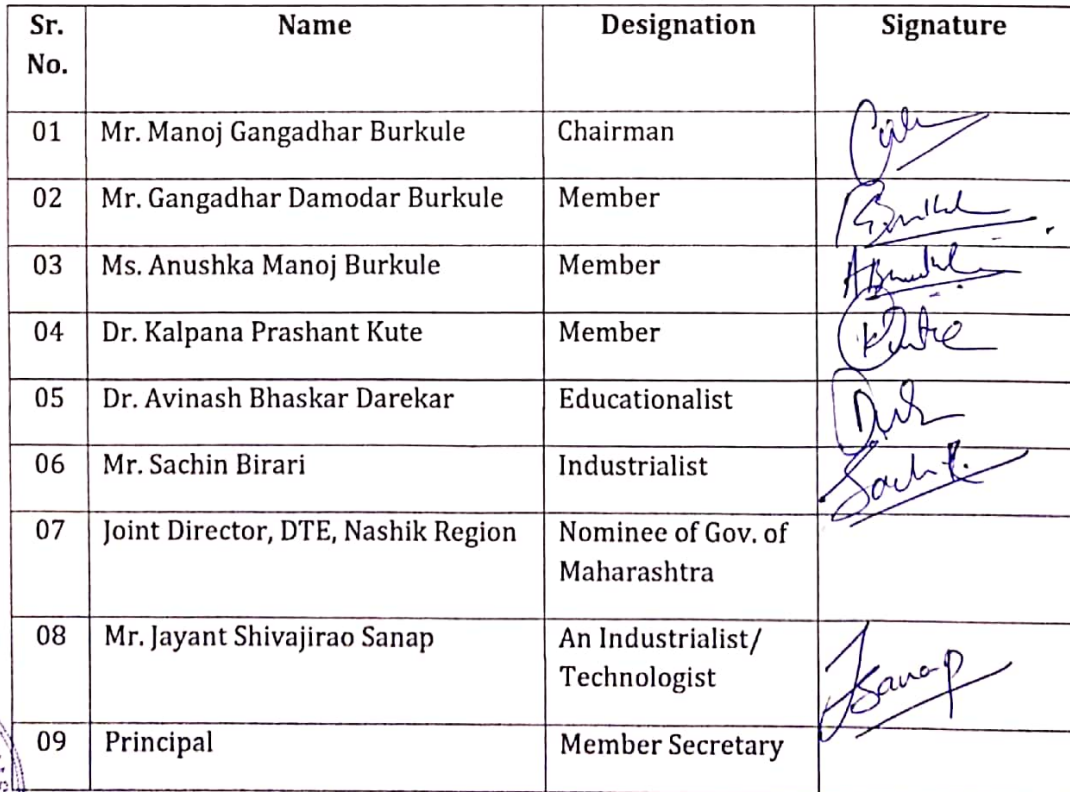 Sr. No. Name Designation Signature
01 Mr. Manoj Gangadhar Burkule Chairman
02 Mr. Gangadhar Damodar Burkule Member
03 Ms. Anushka Manoj Burkule Member
04 Dr. Kalpana Prashant Kute Member
05 Dr. Avinash Bhaskar Darekar Educationalist
06 Mr. Sachin Birari Industrialist
07 Joint Director, DTE, Nashik Region Nominee of Gov. of
Maharashtra
08 Mr. Jayant Shivajirao Sanap An Industrialist/
Technologist Jsanap
09 Principal Member Secretary